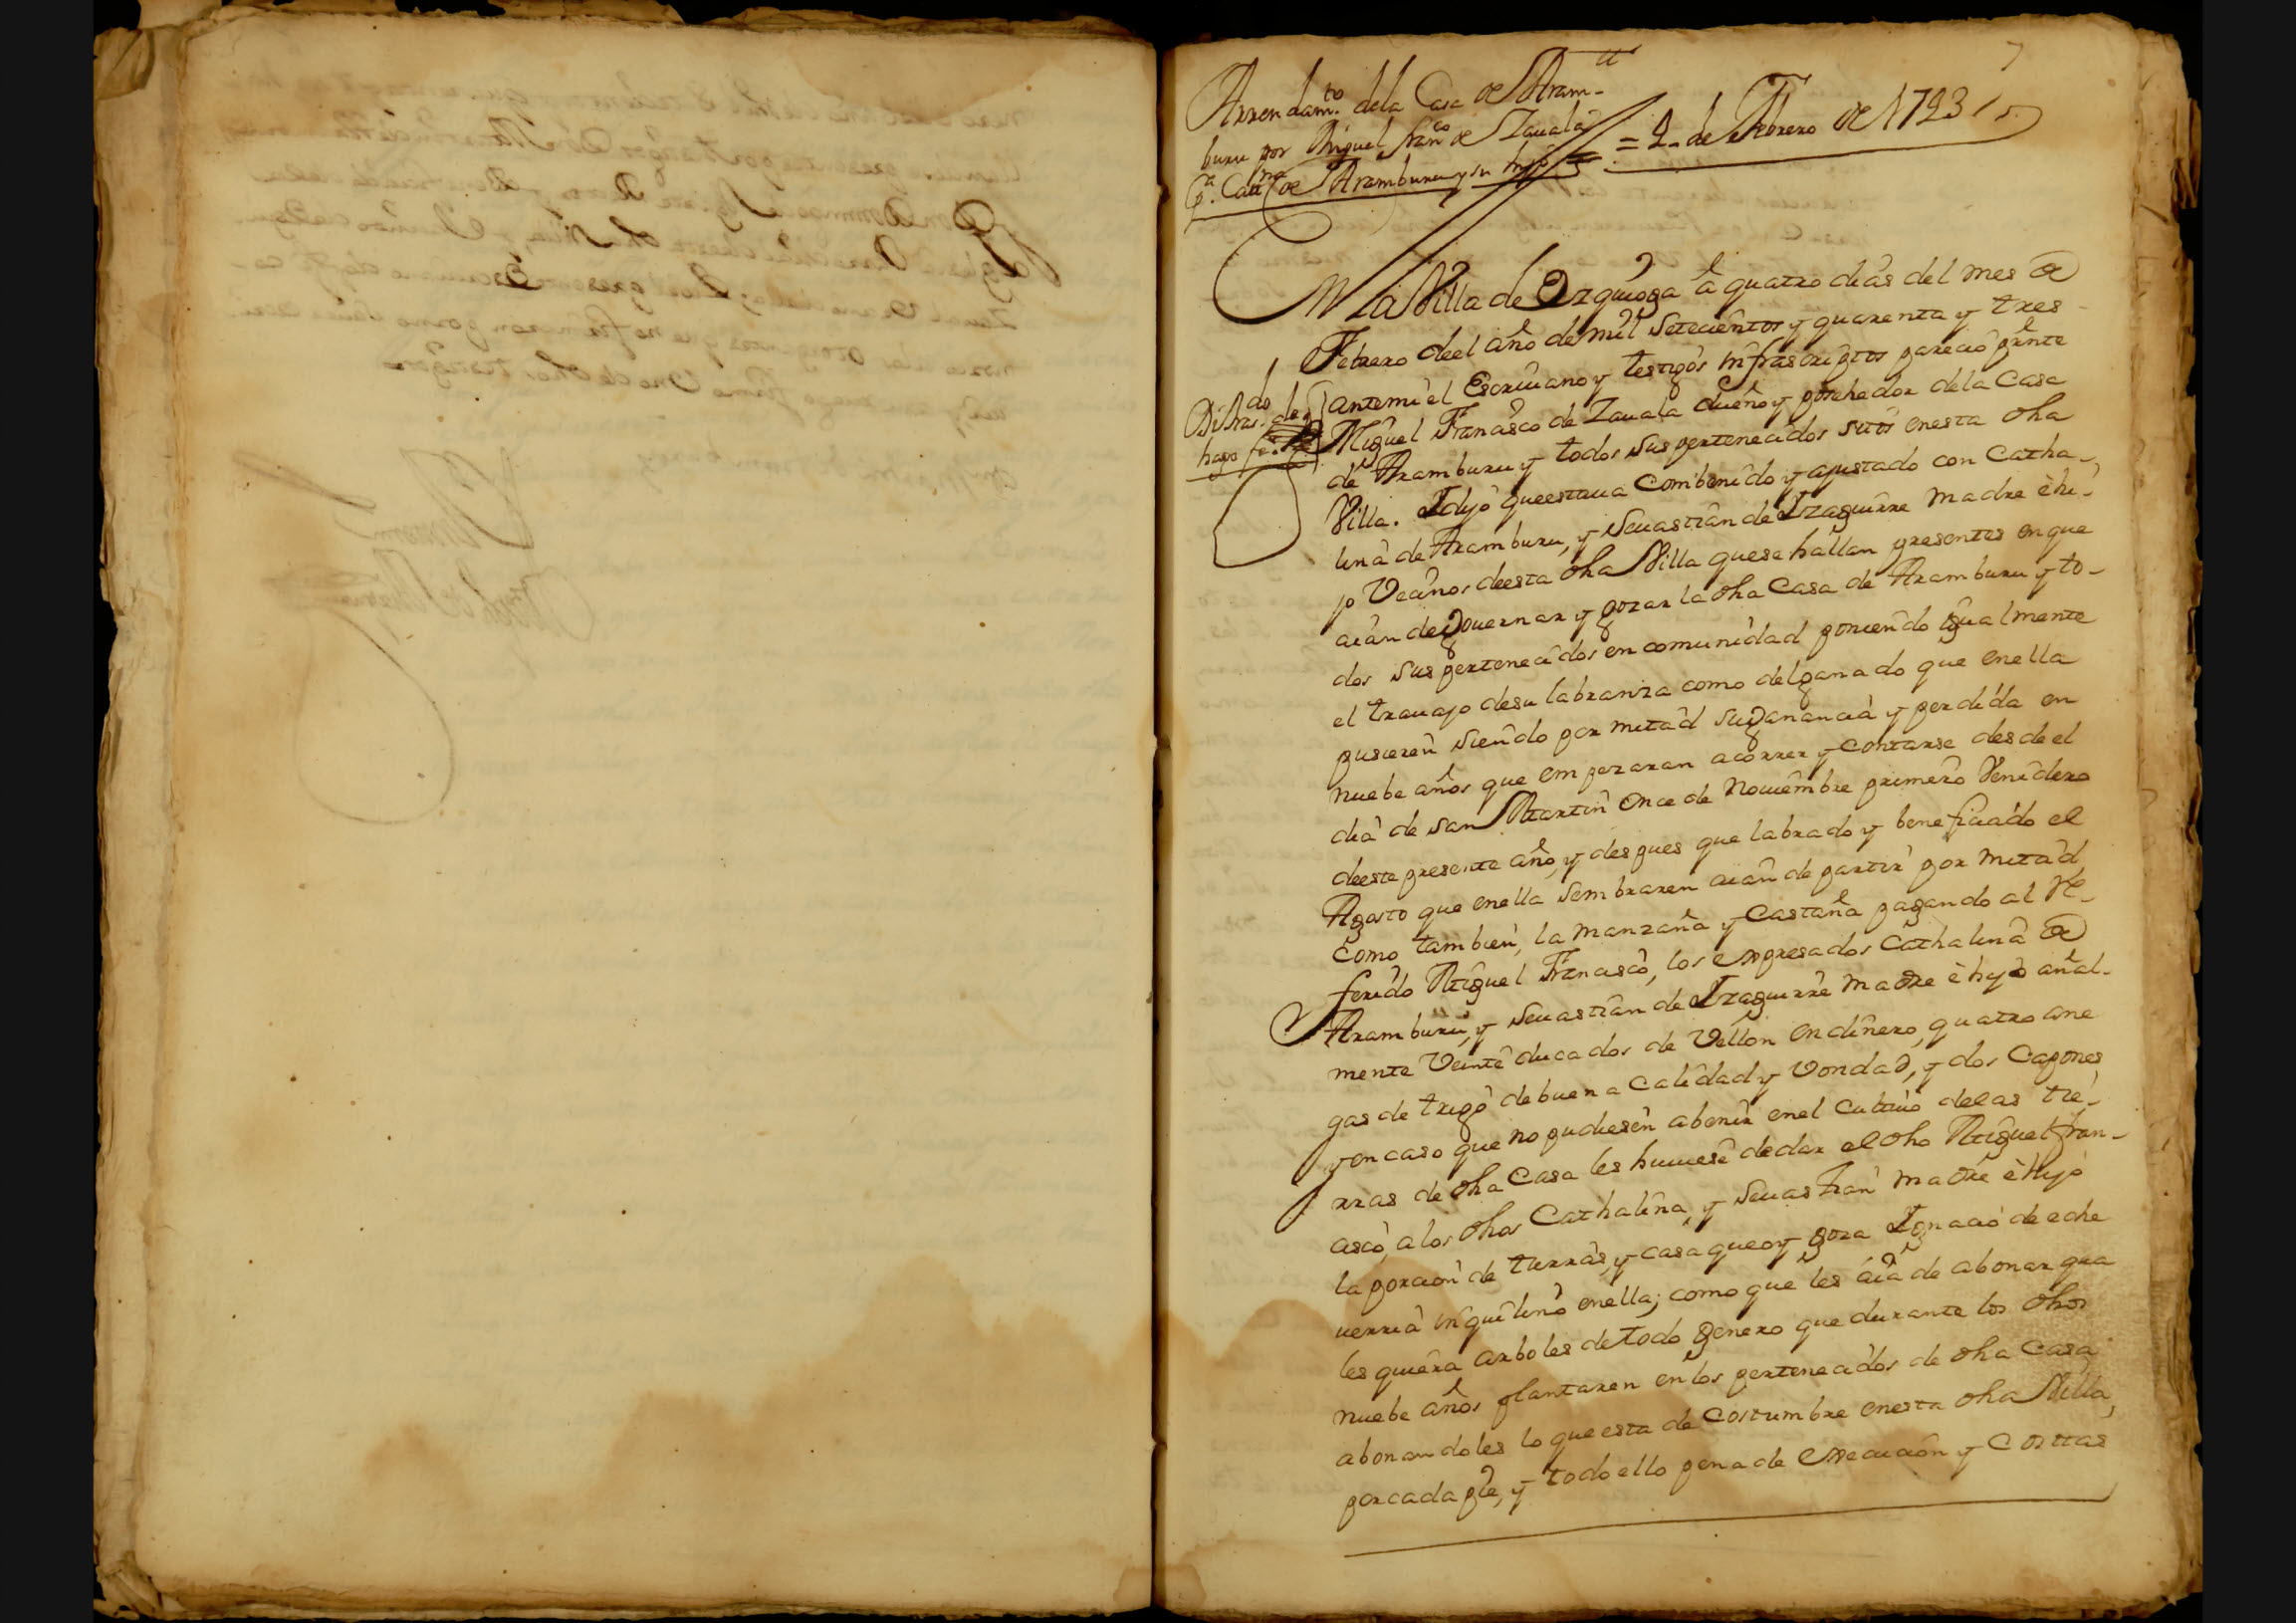 7
Arrendam.to dela Casa de Aram-
buru por Miguel Fran.co de Zauala
p.a Cat.na de Aramburu y su hijo = 4 de Febrero de 1743
En la Villa de Ezquioga â quatro dias del mes de
Febrero deel año de mil setecientos y quarenta y tres
antemi el Escriuano y testigos infrascriptos parecio pñte
Miguel Francisco de Zauala dueño y posehedor dela Casa
de Aramburu y todos sus pertenecidos sitos enesta dha
Villa. Y dijo queestaua combenido y ajustado con Catha-
lina de Aramburu, y Seuastian de Yzaguirre madre è hi-
jo Vecinos deesta dha Villa quese hallan presentes en que
aian de gouernar y gozar la dha Casa de Aramburu y to-
dos sus pertenecidos en comunidad poniendo igualmente
el trauajo desu labranza como del ganado que enella
pusieren siendo por mitad su ganancia y perdida en
nuebe años que empezaran acorrer y contarse desde el
dia de san Martin once de Nouiembre primero Venidero
deeste presente año, y despues que labrado y beneficiado el
Agosto que enella sembraren aian de partir por mitad,
como tambien, la manzana y Castaña pagando al Re-
ferido Miguel Francisco, los expresados Cathalina de
Aramburu, y Seuastian de Yzaguirre madre è hijo añal-
mente Veinte ducados de Vellon en dinero, quatro ane
gas de trigo de buena calidad y Vondad, y dos Capones
y en caso que no pudiesen abenir enel Cultiuo delas tie-
rras de dha Casa les huuiese dedar el dho Miguel Fran-
cisco, a los dhos Cathalina, y Seuastian madre è Hijo
la porcion de tierras, y casa que oy goza Ygnacio de eche
uerria inquilino enella; como que les aia de abonar qua
les quiera arboles de todo genero que durante los dhos
nuebe años plantaren en los pertenecidos de dha Casa
abonandoles lo que esta de Costumbre enesta dha Villa,
por cada pie, y todo ello pena de execucion y Costtas